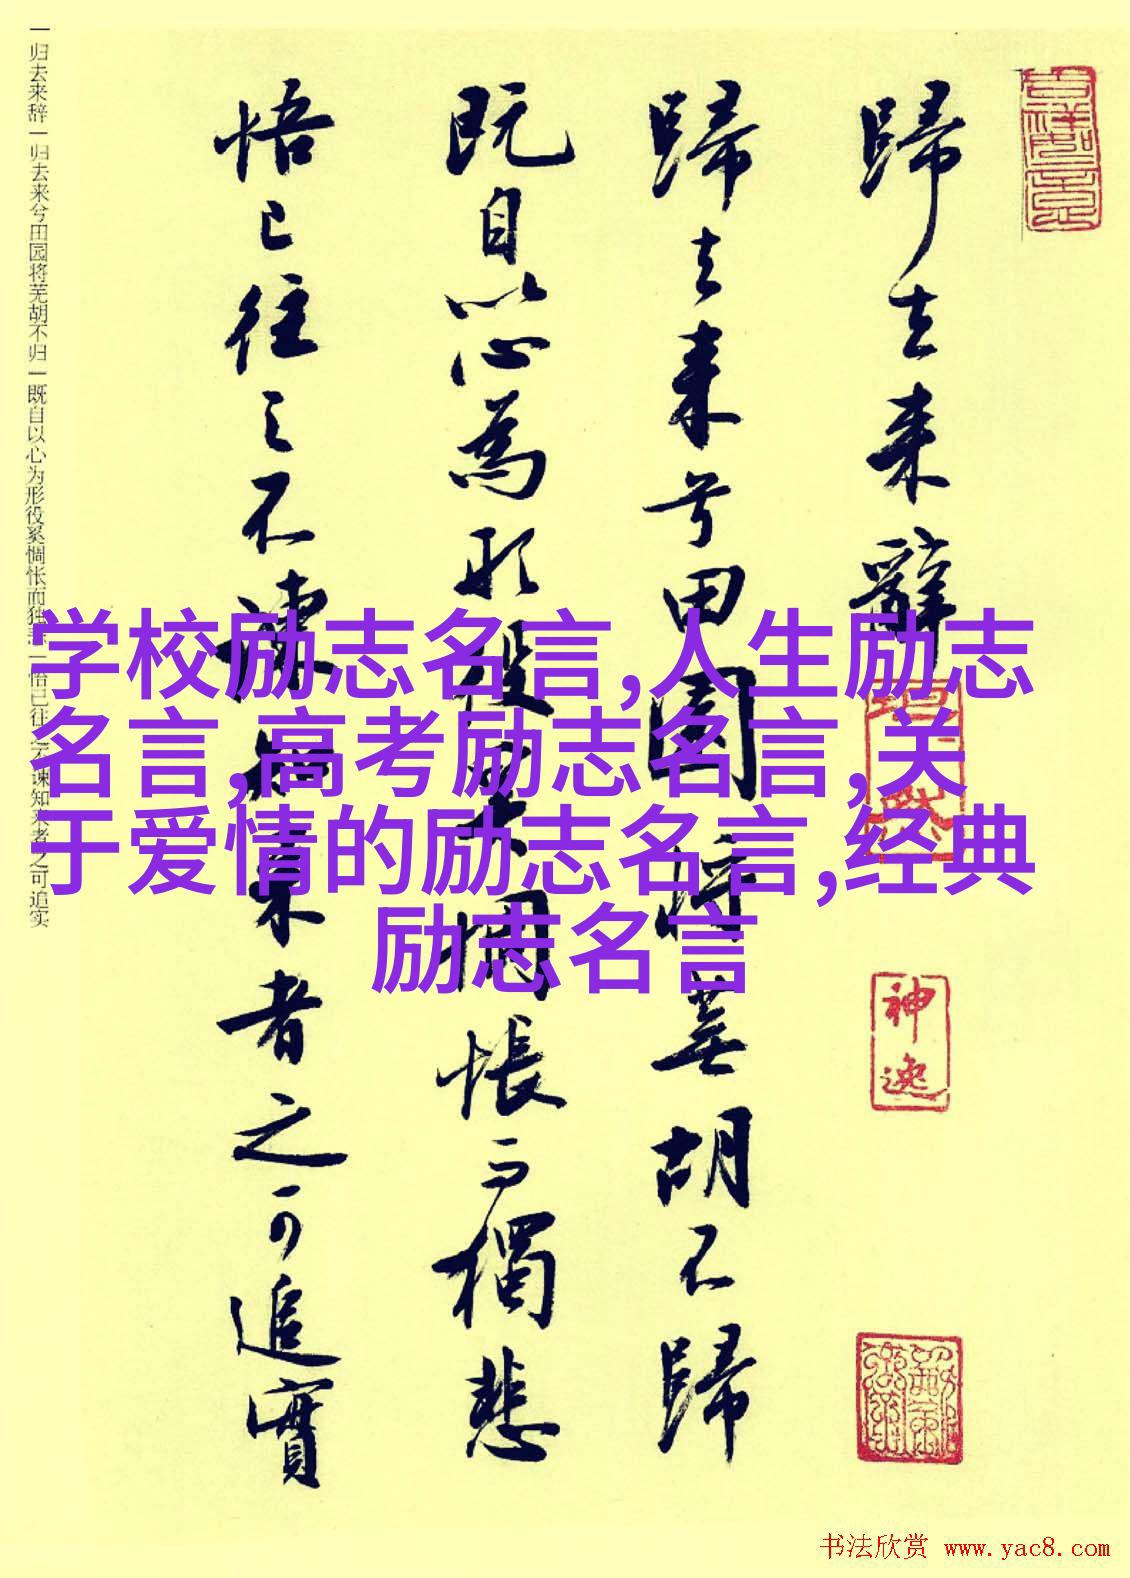 歸去来辭
歸去来兮田園将蕪胡不歸
既自以心為形役奚惆悵而獨悲
悟已往之不諫知来者之可追實
一归去来辞一归去来兮田园将芜胡不归一既自以心为形役奚惆怅而独悲一悟已往之不谏知来者之可追实
学校励志名言,人生励志
名言,高考励志名言,关
于爱情的励志名言,经典
励志名言
神逸
书法欣赏 www.yac8.com